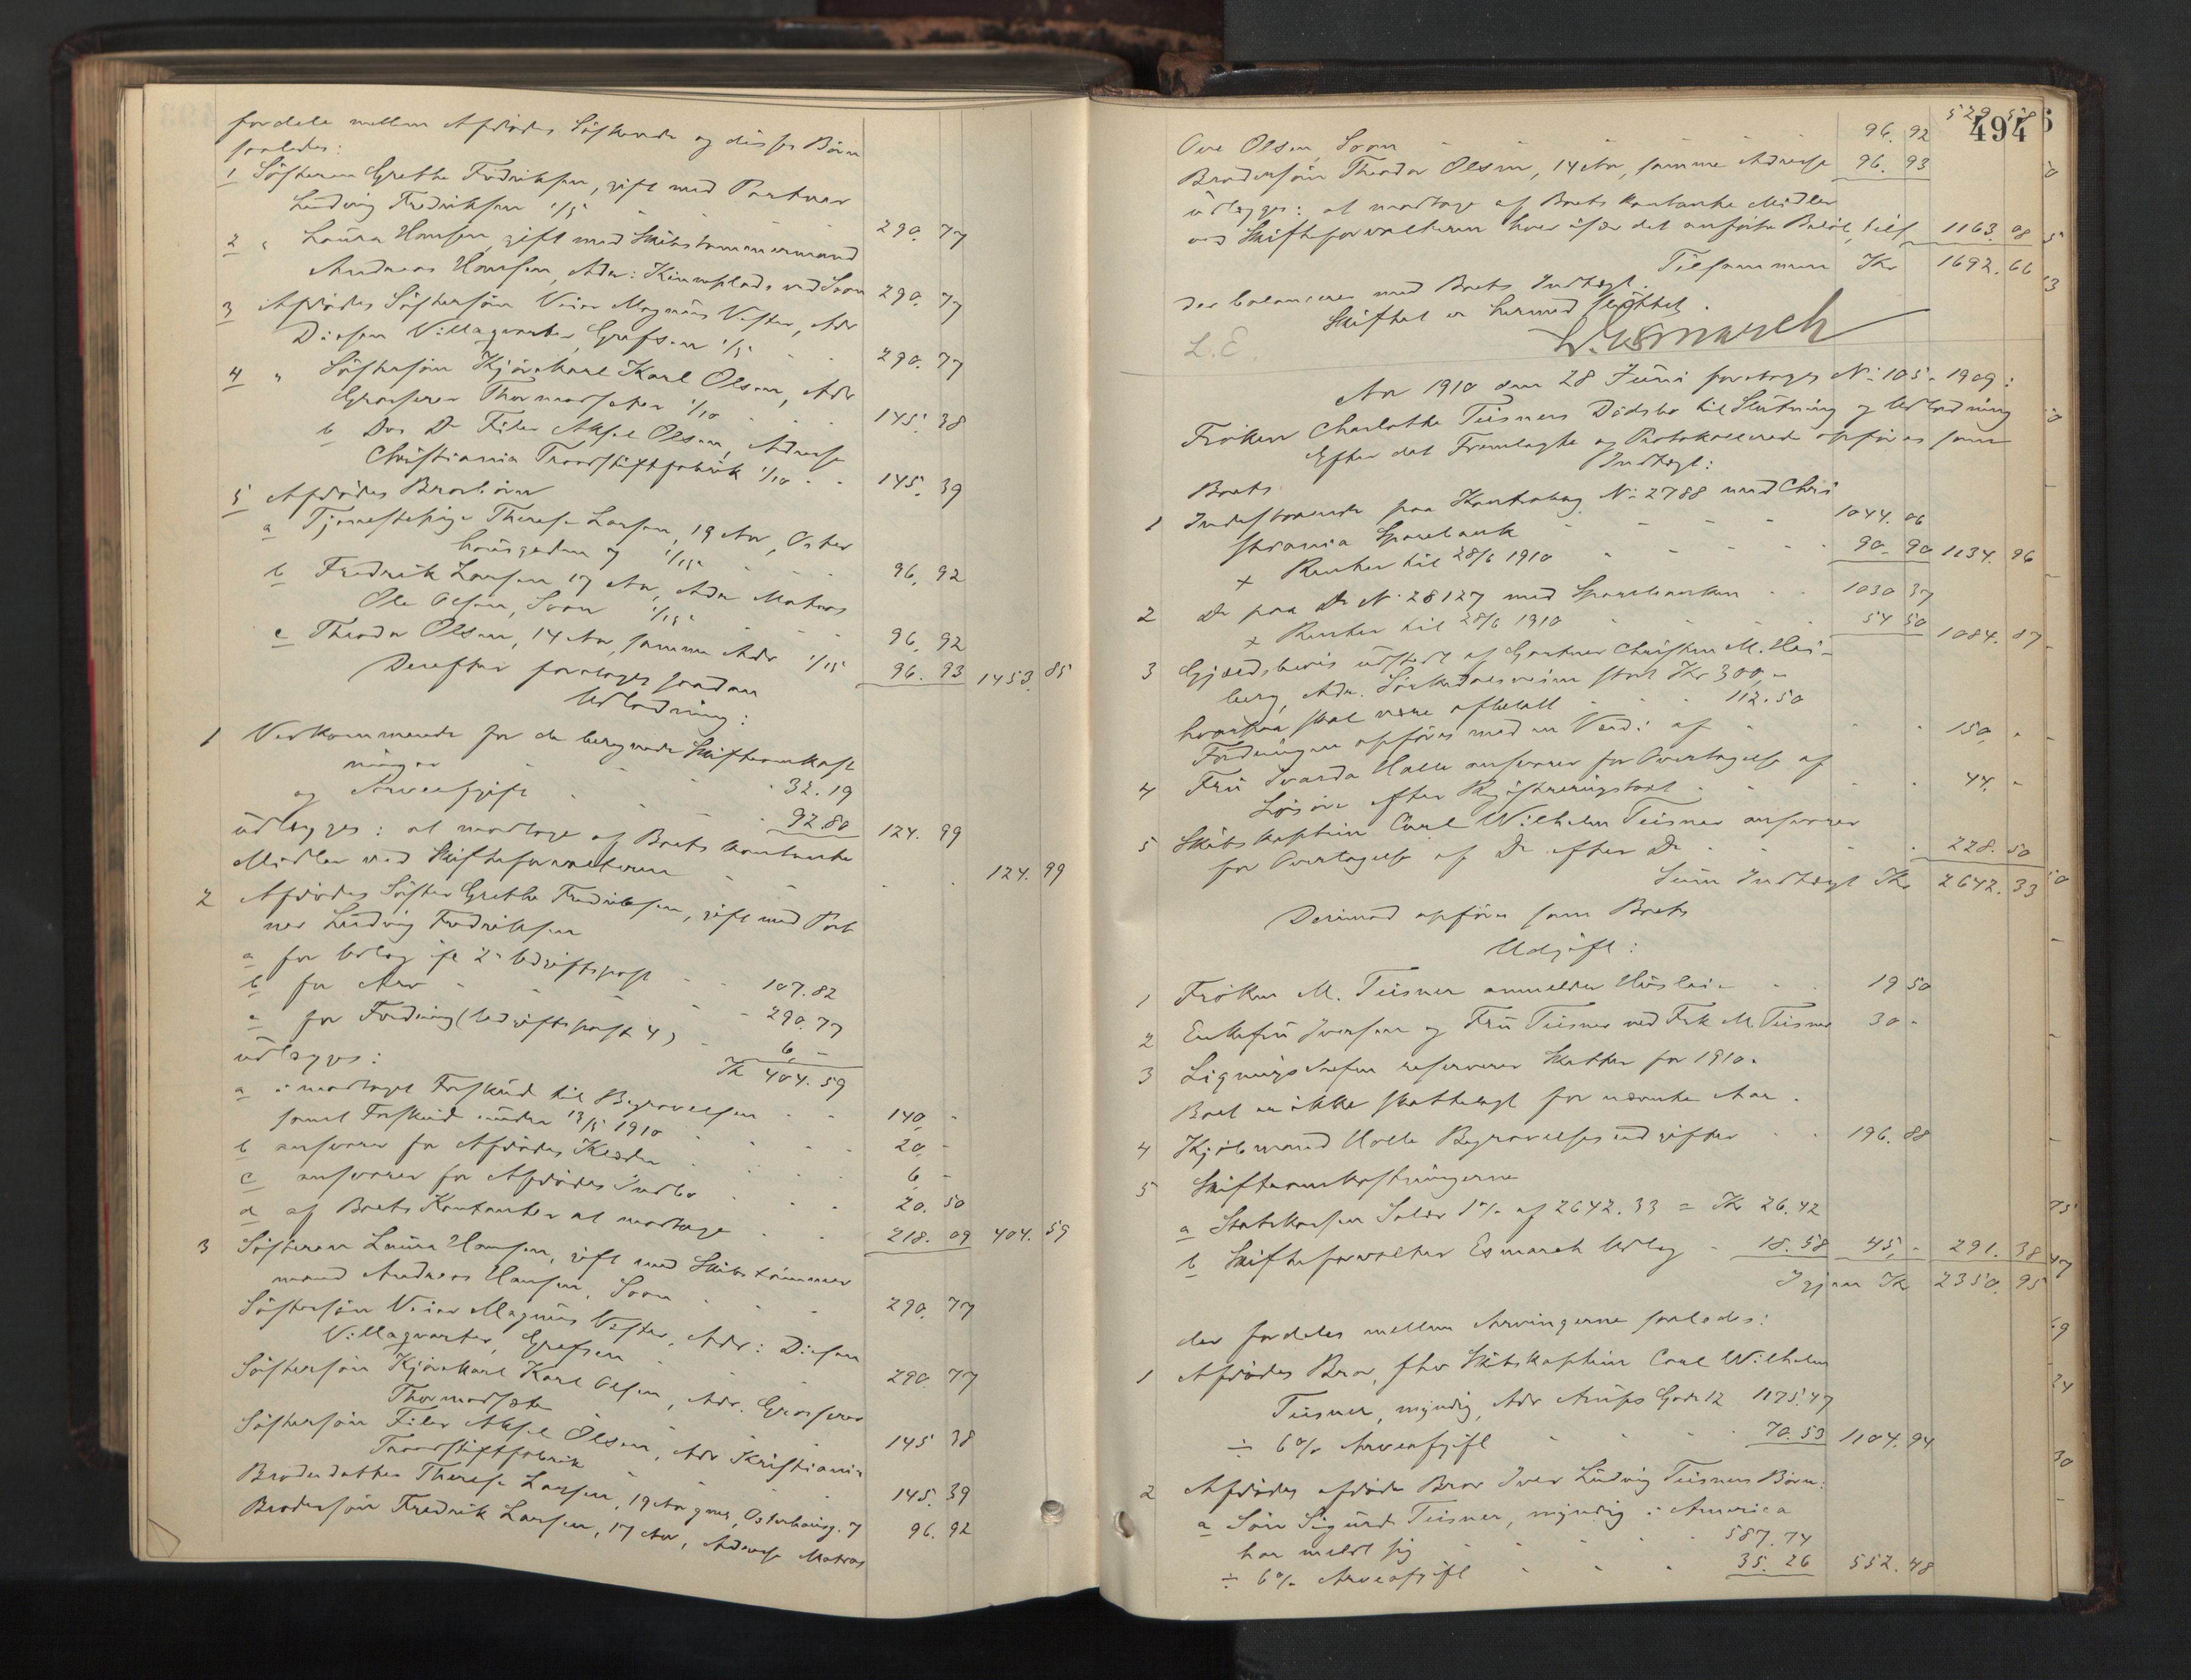 fordeles mellem Afdødes Søskende og disses Børn
saaledes:
1 Søsteren Grethe Fredriksen, gift med Portner
Ludvig Fredriksen 1/5 290. 77
2 " Laura Hansen, gift med Skibstømmermand
Andreas Hansen, Adr: Kinnsplads ved Soon 290. 77
3 Afdødes Søstersøn Victor Magnus Vister, Adr
Disen Villaqvarter, Grefsen 1/5 290. 77
4 " Søstersøn Kjørekarl Karl Olsen, Adr
Grosserer Thormodsæter 1/10 145. 38
b Dos Do Filer Aksel Olsen, Adresse
Christiania Traadstiftfabrik 1/10 145. 39
5 Afdødes Brorbørn
a Tjenestepige Therese Larsen, 19 Aar, Oster
hausgaden 7 1/15 96. 92
b Fredrik Larsen 17 Aar, Adr Matros
Ole Olsen, Soon 1/15 96. 92
c Theodor Olsen, 14 Aar, samme Adr 1/15 96. 93 1453. 85
Derefter foretages saadan
Udlodning:
1 Vedkommende for de beregnede Skifteomkost
ninger 32.19
og Arveafgift 92.80 124. 99
udlægges: at modtage af Boets kontante
Midler ved Skifteforvalteren 124. 99
2 Afdødes Søster Grethe Fredriksen, gift med Port
ner Ludvig Fredriksen
a for Udlæg if 2n Udgiftspost 107.82
b for Arv 290.77
c for Fordring (Udgiftspost 4) 6. -
Kr 404.59
udlægges:
a i modtaget Forskud til Begravelsen 140. -
samt Forskud under 13/5 1910 20. -
b ansvarer for Afdødes Klæder 6. -
c ansvarer for Afdødes Indbo 20. 50
d af Boets Kontanter at modtage 218. 09 404. 59
3 Søsteren Laura Hansen, gift med Skibstømmer
mand Andreas Hansen, Soon 290. 77
Søstersøn Victor Magnus Vister, Adr: Disen
Villaqvarter, Grefsen 290. 77
Søstersøn Kjørekarl Karl Olsen, Adr. Grosserer
Thormodsæter 145 38
Søstersøn Filer Aksel Olsen, Adr Kristiania
Traadstiftfabrik 145. 39
Broderdatter Therese Larsen, 19 Aar gml, Osterhausg. 7 96. 92
Brodersøn Fredrik Larsen, 17 Aar, Adresse Matros
494
529 58
Ole Olsen, Soon 96. 92
Brodersøn Theodor Olsen, 14 Aar, samme Adresse 96. 93
udlægges: at modtage af Boets kontante Midler
ved Skifteforvalteren hver især det anførte Beløb, tils 1163. 08
Tilsammen Kr 1692. 66
der balancerer med Boets Indtægt.
Skiftet er hermed sluttet.
L. E. Esmarch
Aar 1910 den 28 Juni foretoges No 105 - 1909:
Frøken Charlotte Teisners Dødsbo til Slutning og Udlodning
Efter det Fremlagte og Protokollerede opføres som
Boets Indtægt:
1 Indestaaende paa Kontrabog No 2788 med Chri
stiania Sparebank 1044. 06
+ Renter til 28/6 1910 90. 90 1134. 96
2 Do paa Do No 28127 med Sparebanken 1030 37
+ Renter til 28/6 1910 54 50 1084. 87
3 Gjældsbevis udstedt af Gartner Christen M. Hei-
berg, Adr. Sørkedalsveien stort Kr 300, -
hvorpaa skal være afbetalt 112.50
Fordringen opføres med en Værdi af 150, -
4 Fru Svarda Halle ansvarer for Overtagelse af
Løsøre efter Registreringstaxt 44, -
5 Skibskaptein Carl Wilhelm Teisner ansvarer
for Overtagelse af Do efter Do 228. 50
Sum Indtægt Kr 2642. 33
Derimod opføres som Boets
Udgift:
1 Frøken M. Teisner anmelder Husleie 19 50
2 Enkefru Iversen og Fru Teisner ved Frk M. Teisner 30 -
3 Ligningschefen reserverer Skatter for 1910.
Boet er ikke skattelagt for nævnte Aar.
4 Kjøbmand Halle Begravelsesudgifter 196. 88
5 Skifteomkostningerne
a Statskassen Salær 1% af 2642.33 = Kr 26.42
b Skifteforvalter Esmarch Udlæg 18.58 45, - 291. 38
Igjen Kr 2350. 95
der fordeles mellem Arvingerne saaledes:
1 Afdødes Bror, fhv Skibskaptein Carl Wilhelm
Teisner, myndig, Adr Arups Gade 12 1175.47
÷ 6% Arveafgift 70.53 1104. 94
2 Afdødes afdøde Bror Iver Ludvig Teisners Børn:
a Søn Sigurd Teisner, myndig i America
har meldt sig 587.74
÷ 6% Arveafgift 35.26 552. 48